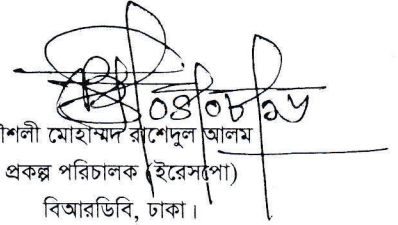 ৌশলী মোহাম্মদ রাশেদুল আলম
প্রকল্প পরিচালক (ইরেসপো)
বিআরডিবি, ঢাকা।